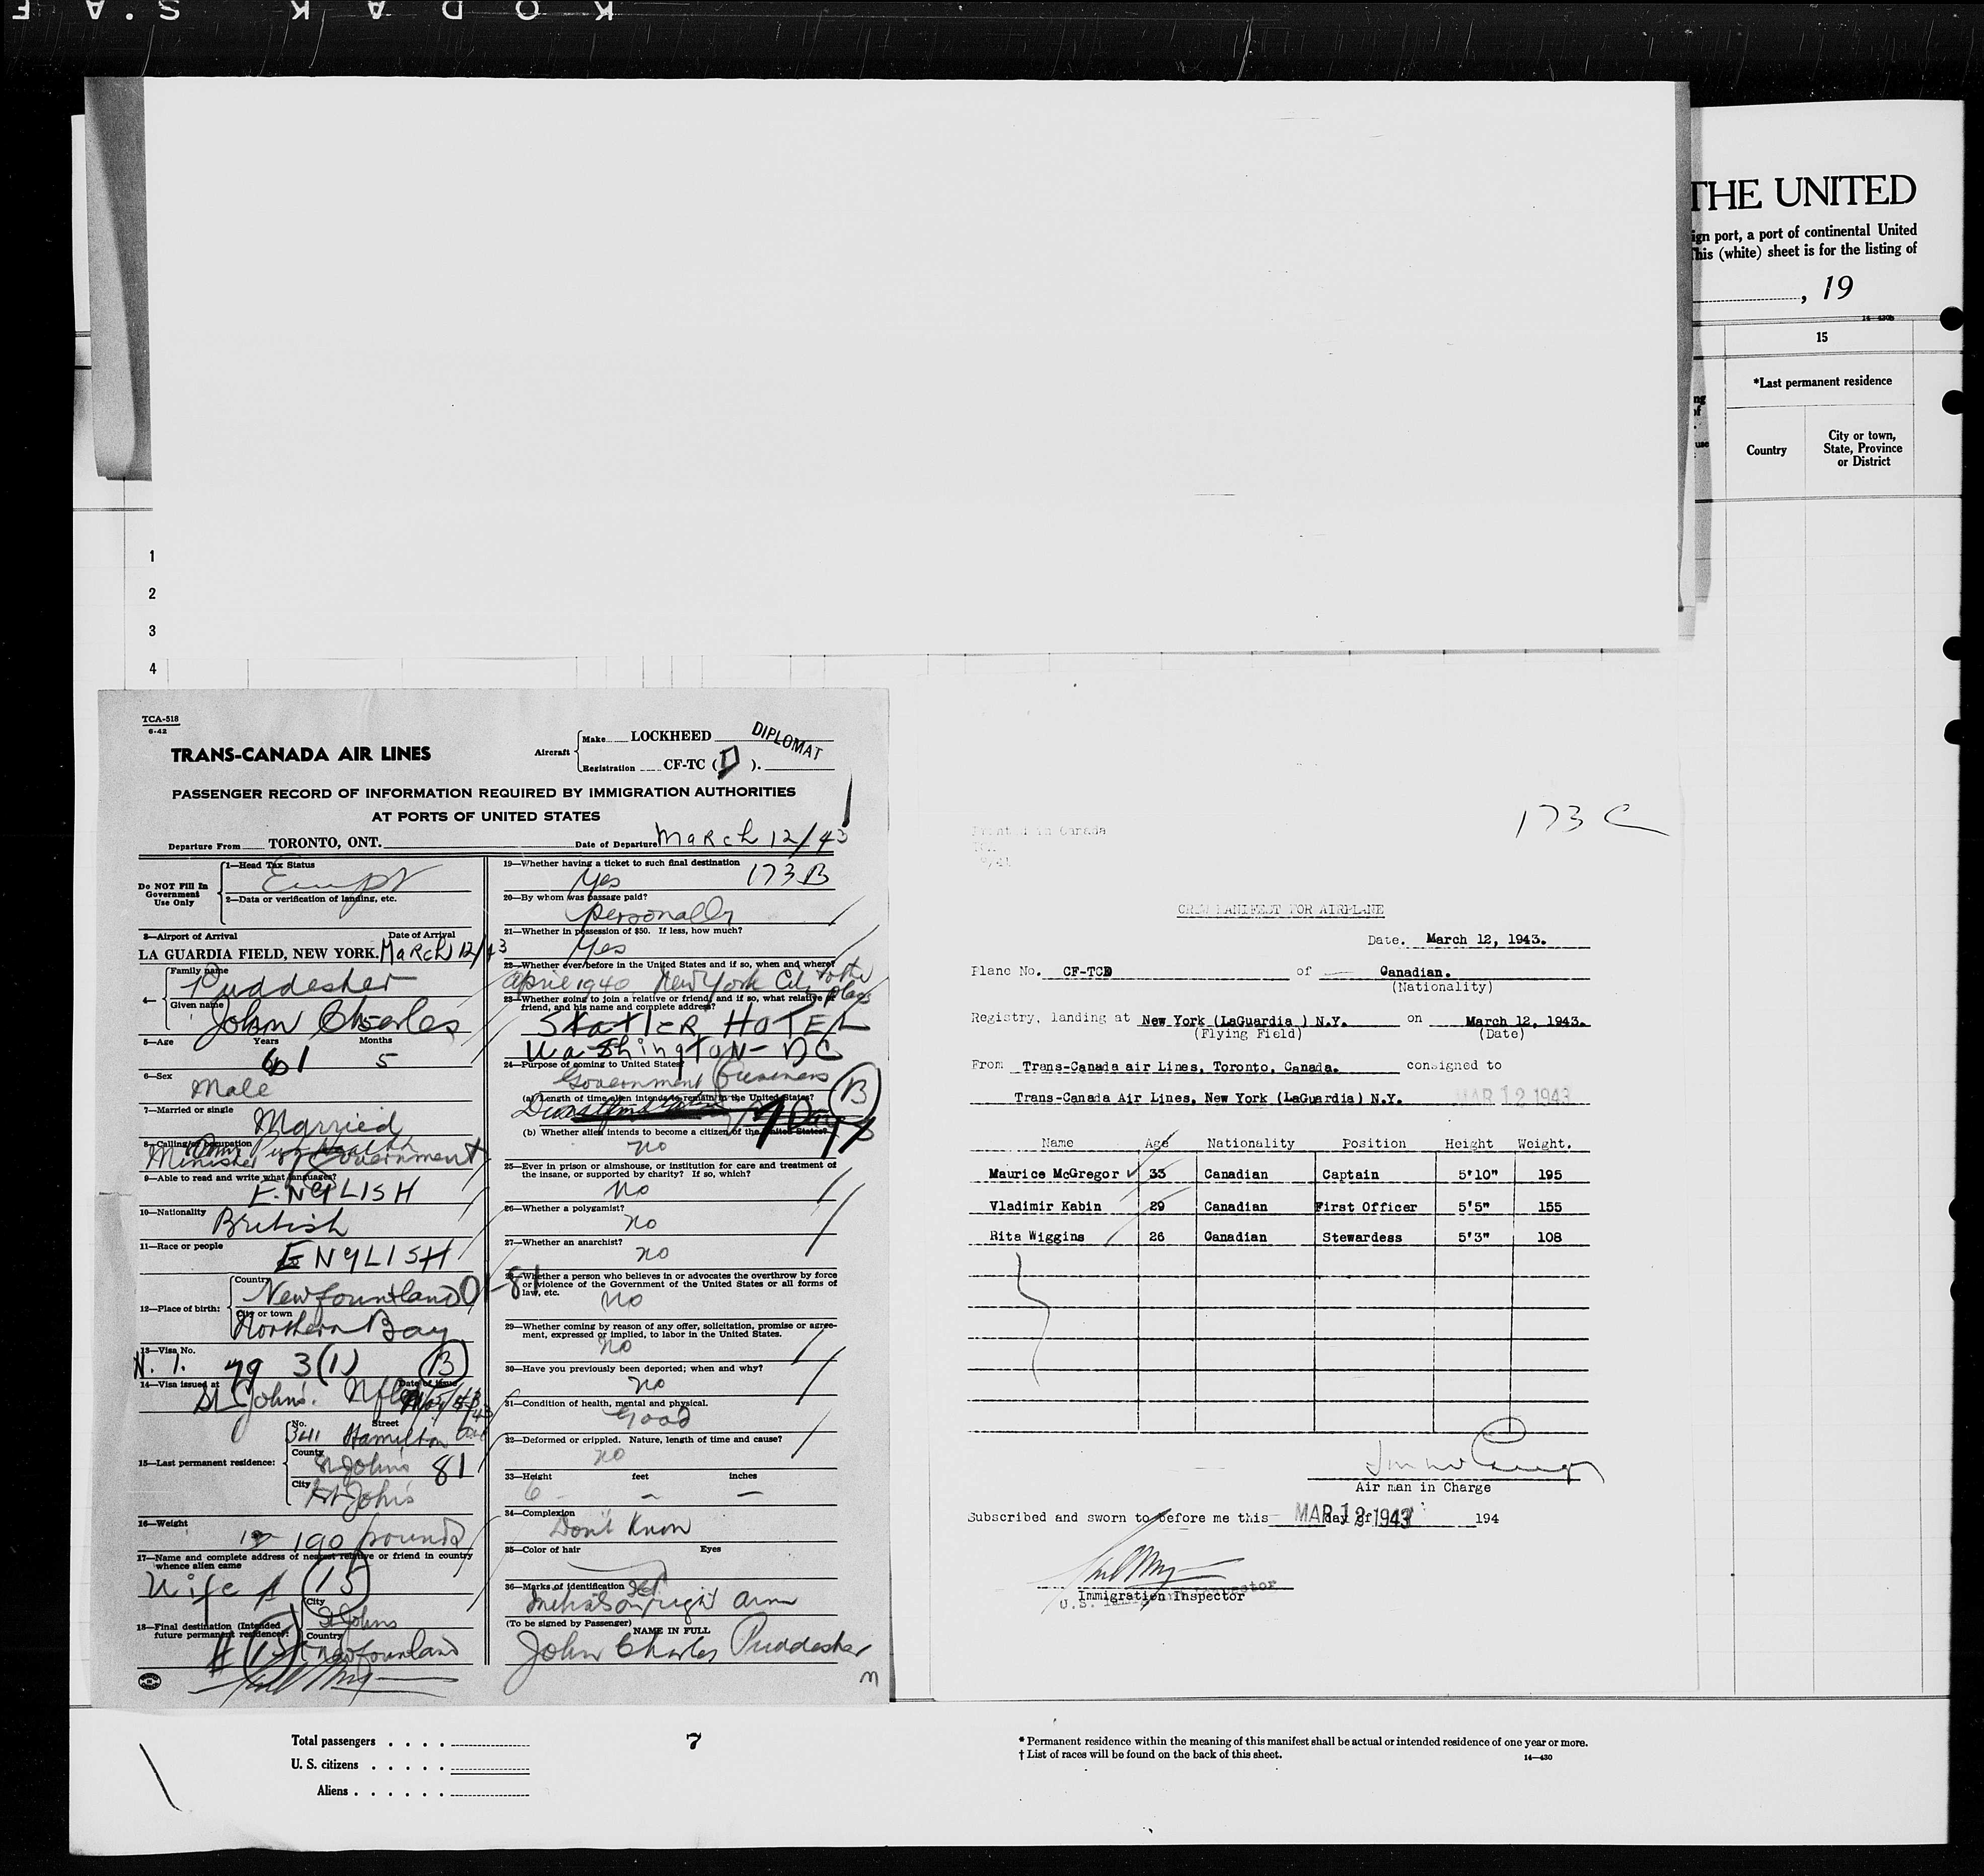 KODAK S.A.F
THE UNITED
ign port, a port of continental United
This (white) sheet is for the listing of
, 19
14—430b
15
*Last permanent residence
Country
City or town,
State, Province
or District
ng
of
use
1
2
3
4
TCA-518
6-42
TRANS-CANADA AIR LINES
Aircraft
Make LOCKHEED
DIPLOMAT
Registration CF-TC ( D ).
PASSENGER RECORD OF INFORMATION REQUIRED BY IMMIGRATION AUTHORITIES
AT PORTS OF UNITED STATES
Departure From TORONTO, ONT. Date of Departure March 12/43
Do NOT Fill In
Government
Use Only
1—Head Tax Status
2—Data or verification of landing, etc.
3—Airport of Arrival Date of Arrival
LA GUARDIA FIELD, NEW YORK. March 12/43
4—
Family name
Puddester
Given name
John Charles
5—Age Years Months
61 5
6—Sex
Male
7—Married or single
Married
8—Calling or occupation
Minister of Government
9—Able to read and write what languages?
ENGLISH
10—Nationality
British
11—Race or people
ENGLISH
12—Place of birth:
Country
Newfoundland
City or town
Northern Bay
13—Visa No.
79 3(1) B
14—Visa issued at Date of Issue
St. John's. Nfld
15—Last permanent residence:
No. Street
341 Hamilton Ave
County
St John's 81
City
St John's
16—Weight
190 pounds
17—Name and complete address of nearest relative or friend in country
whence alien came
Wife # (15)
18—Final destination (Intended
future permanent residence):
City
St Johns
Country
Newfounland
# (15)
19—Whether having a ticket to such final destination
Yes 173 B
20—By whom was passage paid?
personally
21—Whether in possession of $50. If less, how much?
Yes
22—Whether ever before in the United States and if so, when and where?
April 1940 New York City + other places
23—Whether going to join a relative or friend, and if so, what relative or
friend, and his name and complete address?
STATLER HOTEL
Washington - DC
24—Purpose of coming to United States?
Government business
B
(a) Length of time alien intends to remain in the United States?
(b) Whether alien intends to become a citizen of the United States?
no
25—Ever in prison or almshouse, or institution for care and treatment of
the insane, or supported by charity? If so, which?
no
26—Whether a polygamist?
no
27—Whether an anarchist?
no
28—Whether a person who believes in or advocates the overthrow by force
or violence of the Government of the United States or all forms of
law, etc.
no
29—Whether coming by reason of any offer, solicitation, promise or agree-
ment, expressed or implied, to labor in the United States.
no
30—Have you previously been deported; when and why?
no
31—Condition of health, mental and physical.
Good
32—Deformed or crippled. Nature, length of time and cause?
no
33—Height feet inches
6 - - -
34—Complexion
Don't Know
35—Color of hair Eyes
36—Marks of identification
Initials on right arm
(To be signed by Passenger) NAME IN FULL
John Charles Puddester
173 C
Printed in Canada
CREW MANIFEST FOR AIRPLANE
Date. March 12, 1943.
Plane No. CF-TCD of Canadian.
(Nationality)
Registry, landing at New York (LaGuardia ) N.Y. on March 12, 1943.
(Flying Field) (Date)
From Trans-Canada air Lines, Toronto, Canada. consigned to
Trans-Canada Air Lines, New York (LaGuardia) N.Y. MAR 12 1943
Name Age Nationality Position Height Weight.
Maurice McGregor 33 Canadian Captain 5'10" 195
Vladimir Kabin 29 Canadian First Officer 5'5" 155
Rita Wiggins 26 Canadian Stewardess 5'3" 108
Air man in Charge
Subscribed and sworn to before me this MAR 12 1943 day of 194
U.S. Immigrant Inspector
Immigration Inspector
Total passengers . . . .
U. S. citizens . . . . .
Aliens . . . . . .
7
* Permanent residence within the meaning of this manifest shall be actual or intended residence of one year or more.
† List of races will be found on the back of this sheet. 14—430